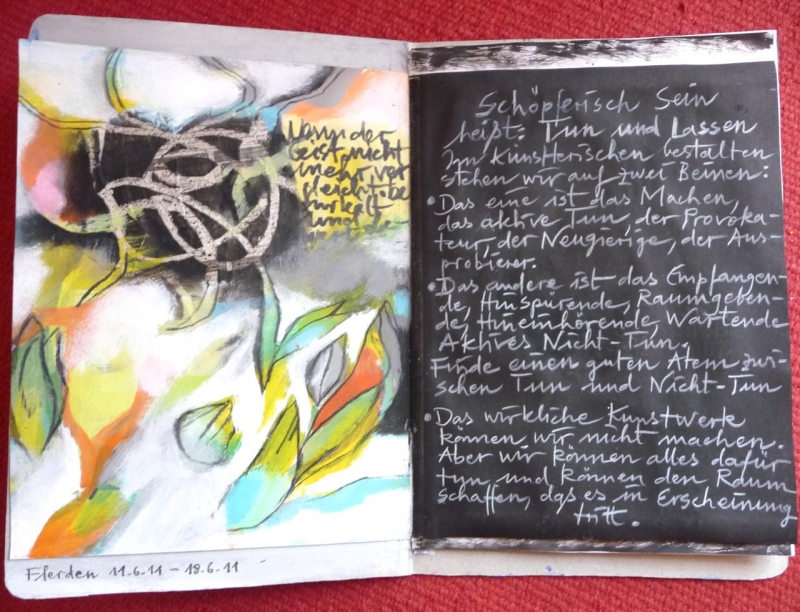 Wenn der
Geist nicht
mehr vor

und
Flerden 11.6.11 – 18.6.11
Schöpferisch Sein
heißt: Tun und Lassen
Im künstlerischen Gestalten
stehen wir auf zwei Beinen:
• Das eine ist das Machen,
das aktive Tun, der Provoka-
teur, der Neugierige, der Aus-
probierer.
• Das andere ist das Empfangen-
de, Hinspürende, Raumgeben-
de, Hineinhörende, Wartende
Aktives Nicht-Tun.
Finde einen guten Atem zwi-
schen Tun und Nicht-Tun
• Das wirkliche Kunstwerk
können wir nicht machen.
Aber wir können alles dafür
tun und können den Raum
schaffen, das es in Erscheinung
tritt.